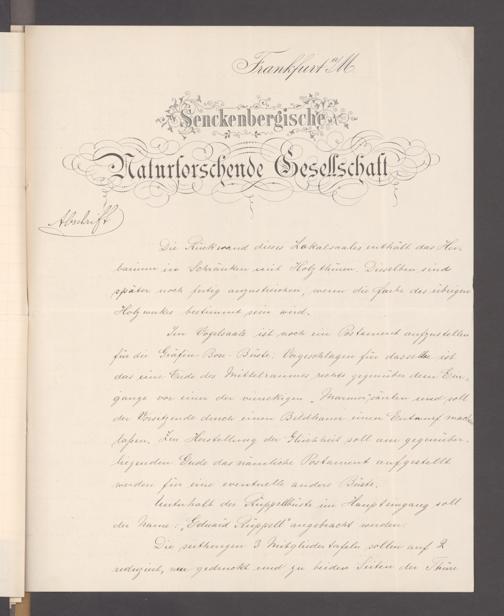 Frankfurt a/M.
Senckenbergische
Naturforschende Gesellschaft
Abschrift
Die Rückwand dieses Lokalsaales enthält das Her-
barium in Schränken mit Holzthüren. Dieselben sind
später noch fertig anzustreichen, wenn die Farbe des übrigen
Holzwerkes bestimmt sein wird.
Im Vogelsaale ist noch ein Postament aufzustellen
für die Gräfin Bose-Büste. Vorgeschlagen für dasselbe ist
das eine Ende des Mittelraumes rechts gegenüber dem Ein-
gange vor einer der viereckigen Marmorsäulen und soll
der Vorsitzende durch einen Bildhauer einen Entwurf machen
laßen. Zur Herstellung der Gleichheit soll am gegenüber-
liegenden Ende das nämliche Postament aufgestellt
werden für eine eventuelle andere Büste.
Unterhalb der Rüppellbüste im Haupteingang soll
der Name: „Eduard Rüppell" angebracht werden.
Die seitherigen 3 Mitgliedertafeln sollen auf 2
reduzirt, neu gedruckt und zu beiden Seiten der Thüre